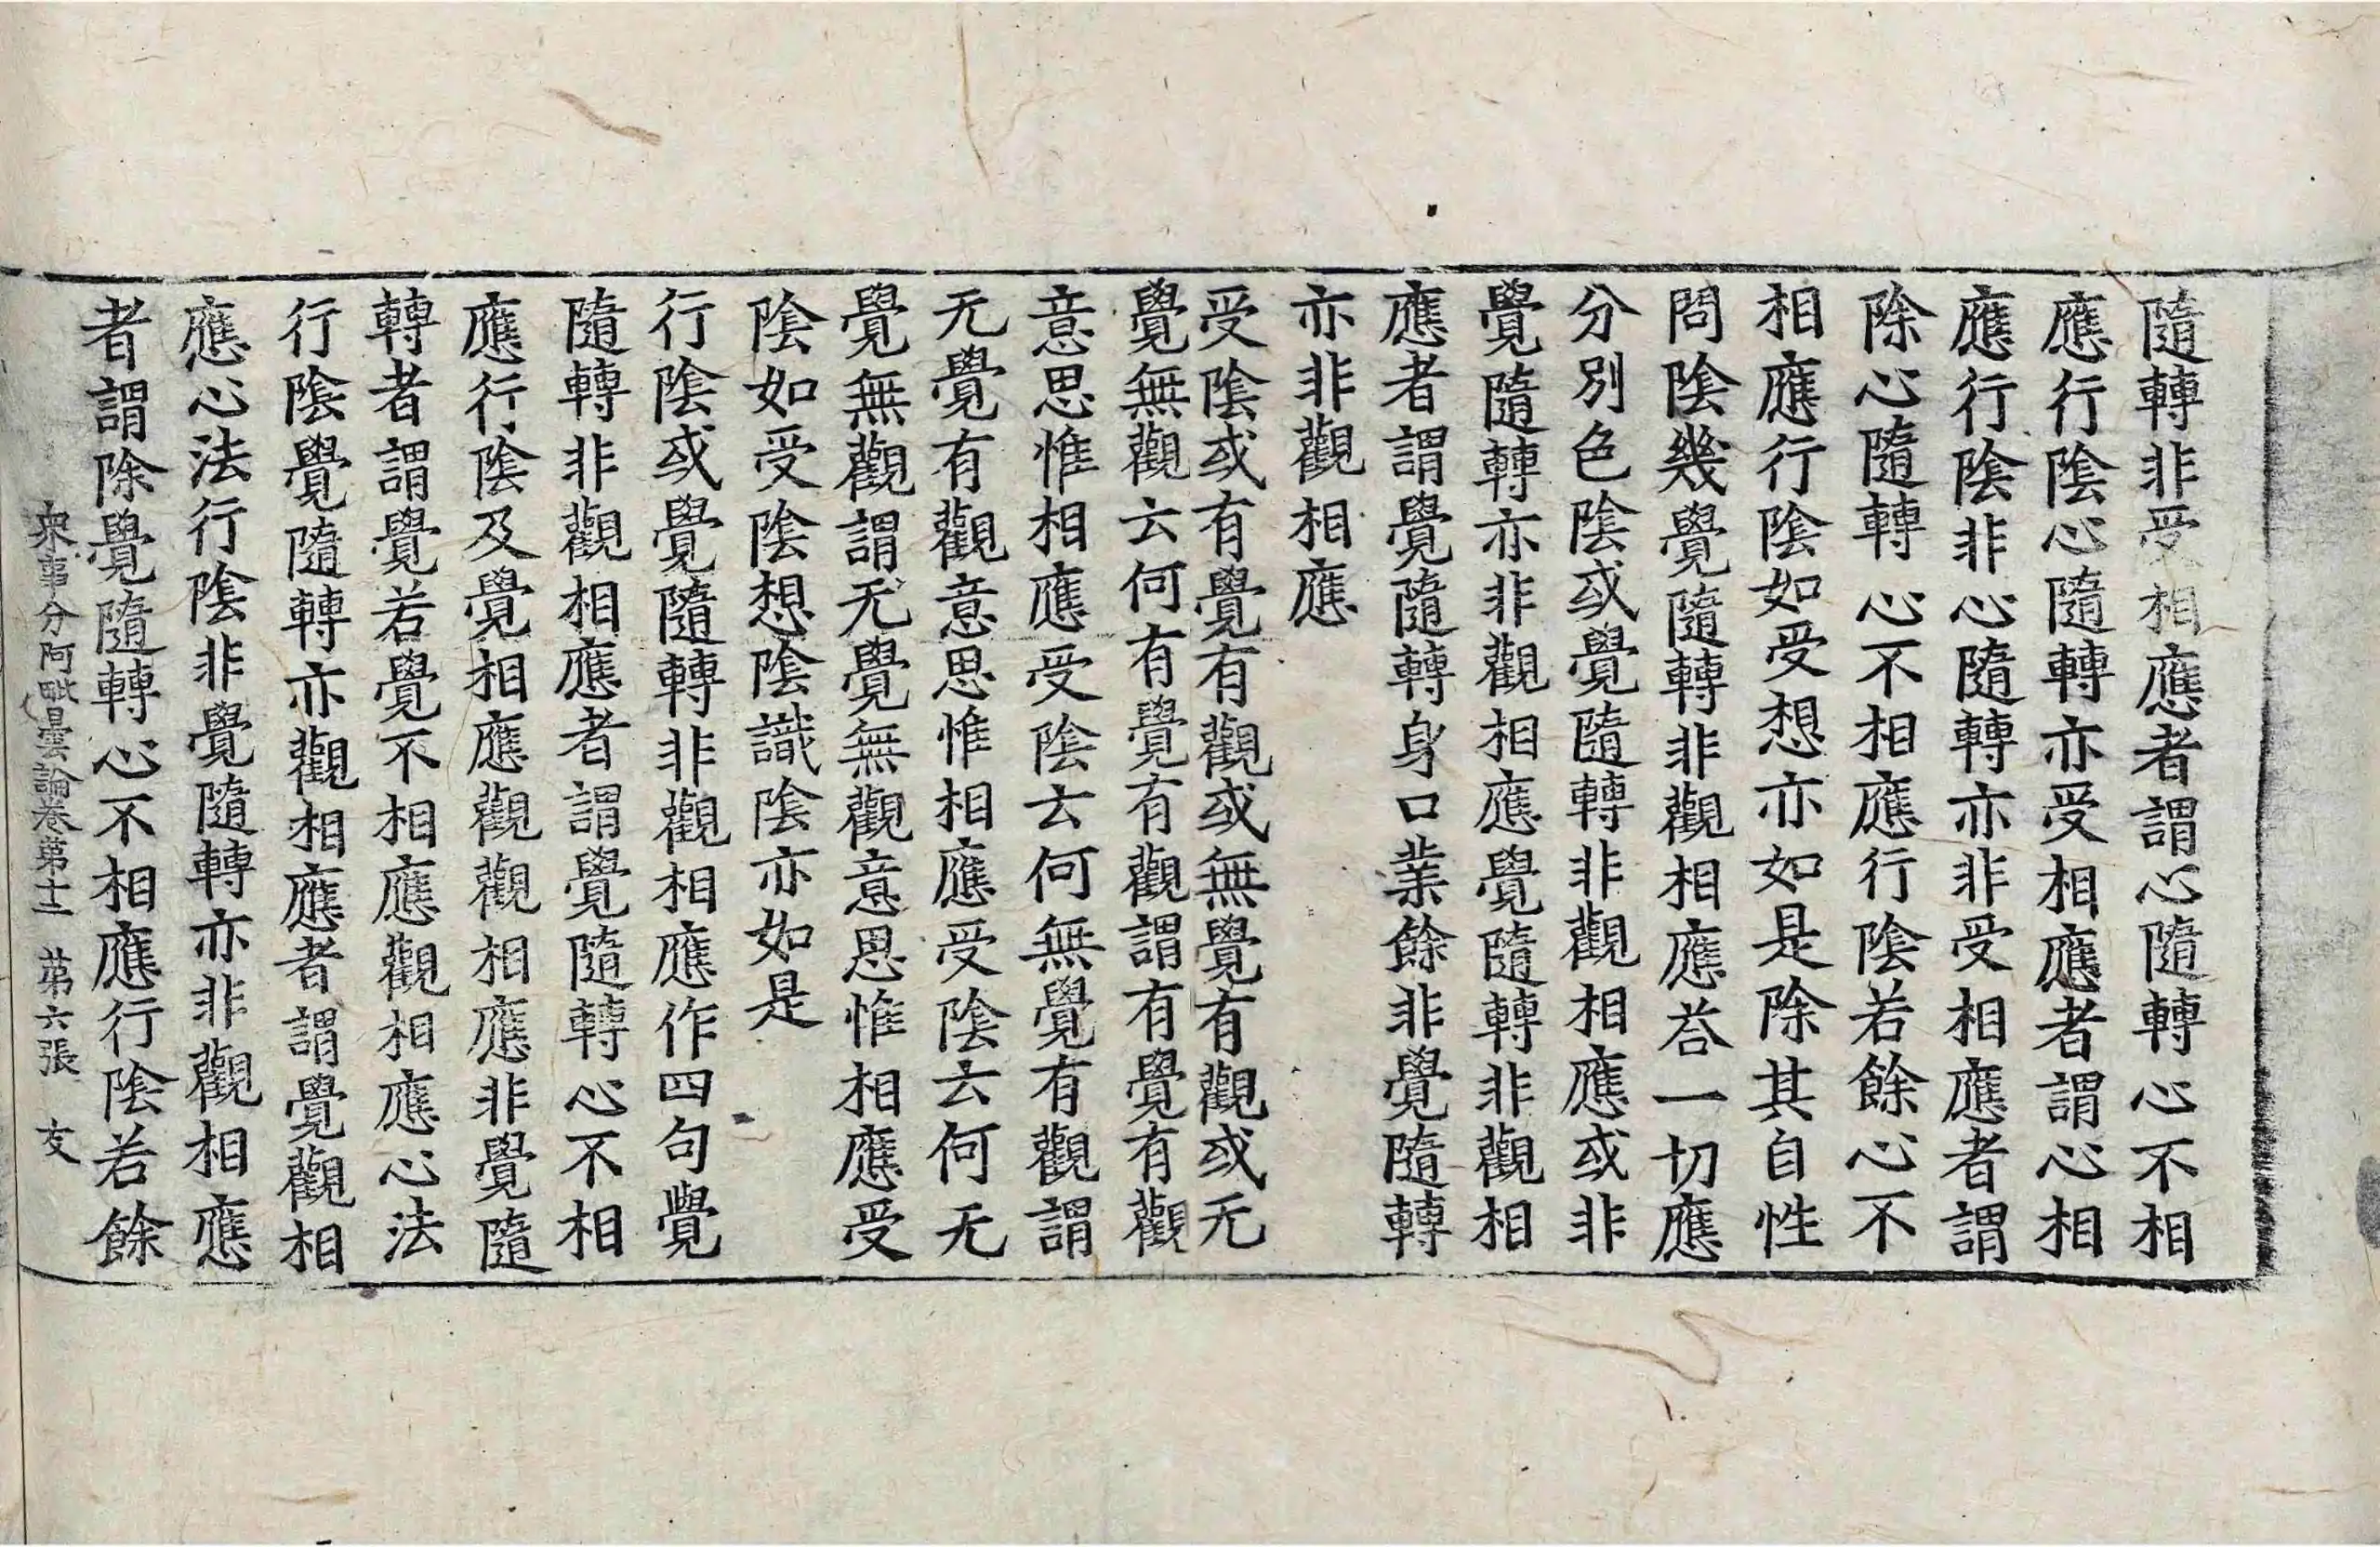 隨轉非受相應者謂心隨轉心不相
應行陰心隨轉亦受相應者謂心相
應行陰非心隨轉亦非受相應者謂
除心隨轉心不相應行陰若餘心不
相應行陰如受想亦如是除其自性
問陰幾覺隨轉非觀相應荅一切應
分別色陰或覺隨轉非觀相應或非
覺隨轉亦非觀相應覺隨轉非觀相
應者謂覺隨轉身口業餘非覺隨轉
亦非觀相應
受陰或有覺有觀或無覺有觀或无
覺無觀云何有覺有觀謂有覺有觀
意思惟相應受陰云何無覺有觀謂
无覺有觀意思惟相應受陰云何无
覺無觀謂无覺無觀意思惟相應受
陰如受陰想陰識陰亦如是
行陰或覺隨轉非觀相應作四句覺
隨轉非觀相應者謂覺隨轉心不相
應行陰及覺相應觀觀相應非覺隨
轉者謂覺若覺不相應觀相應心法
行陰覺隨轉亦觀相應者謂覺觀相
應心法行陰非覺隨轉亦非觀相應
者謂除覺隨轉心不相應行陰若餘
衆事分阿毗曇論卷第十二 第六張 友